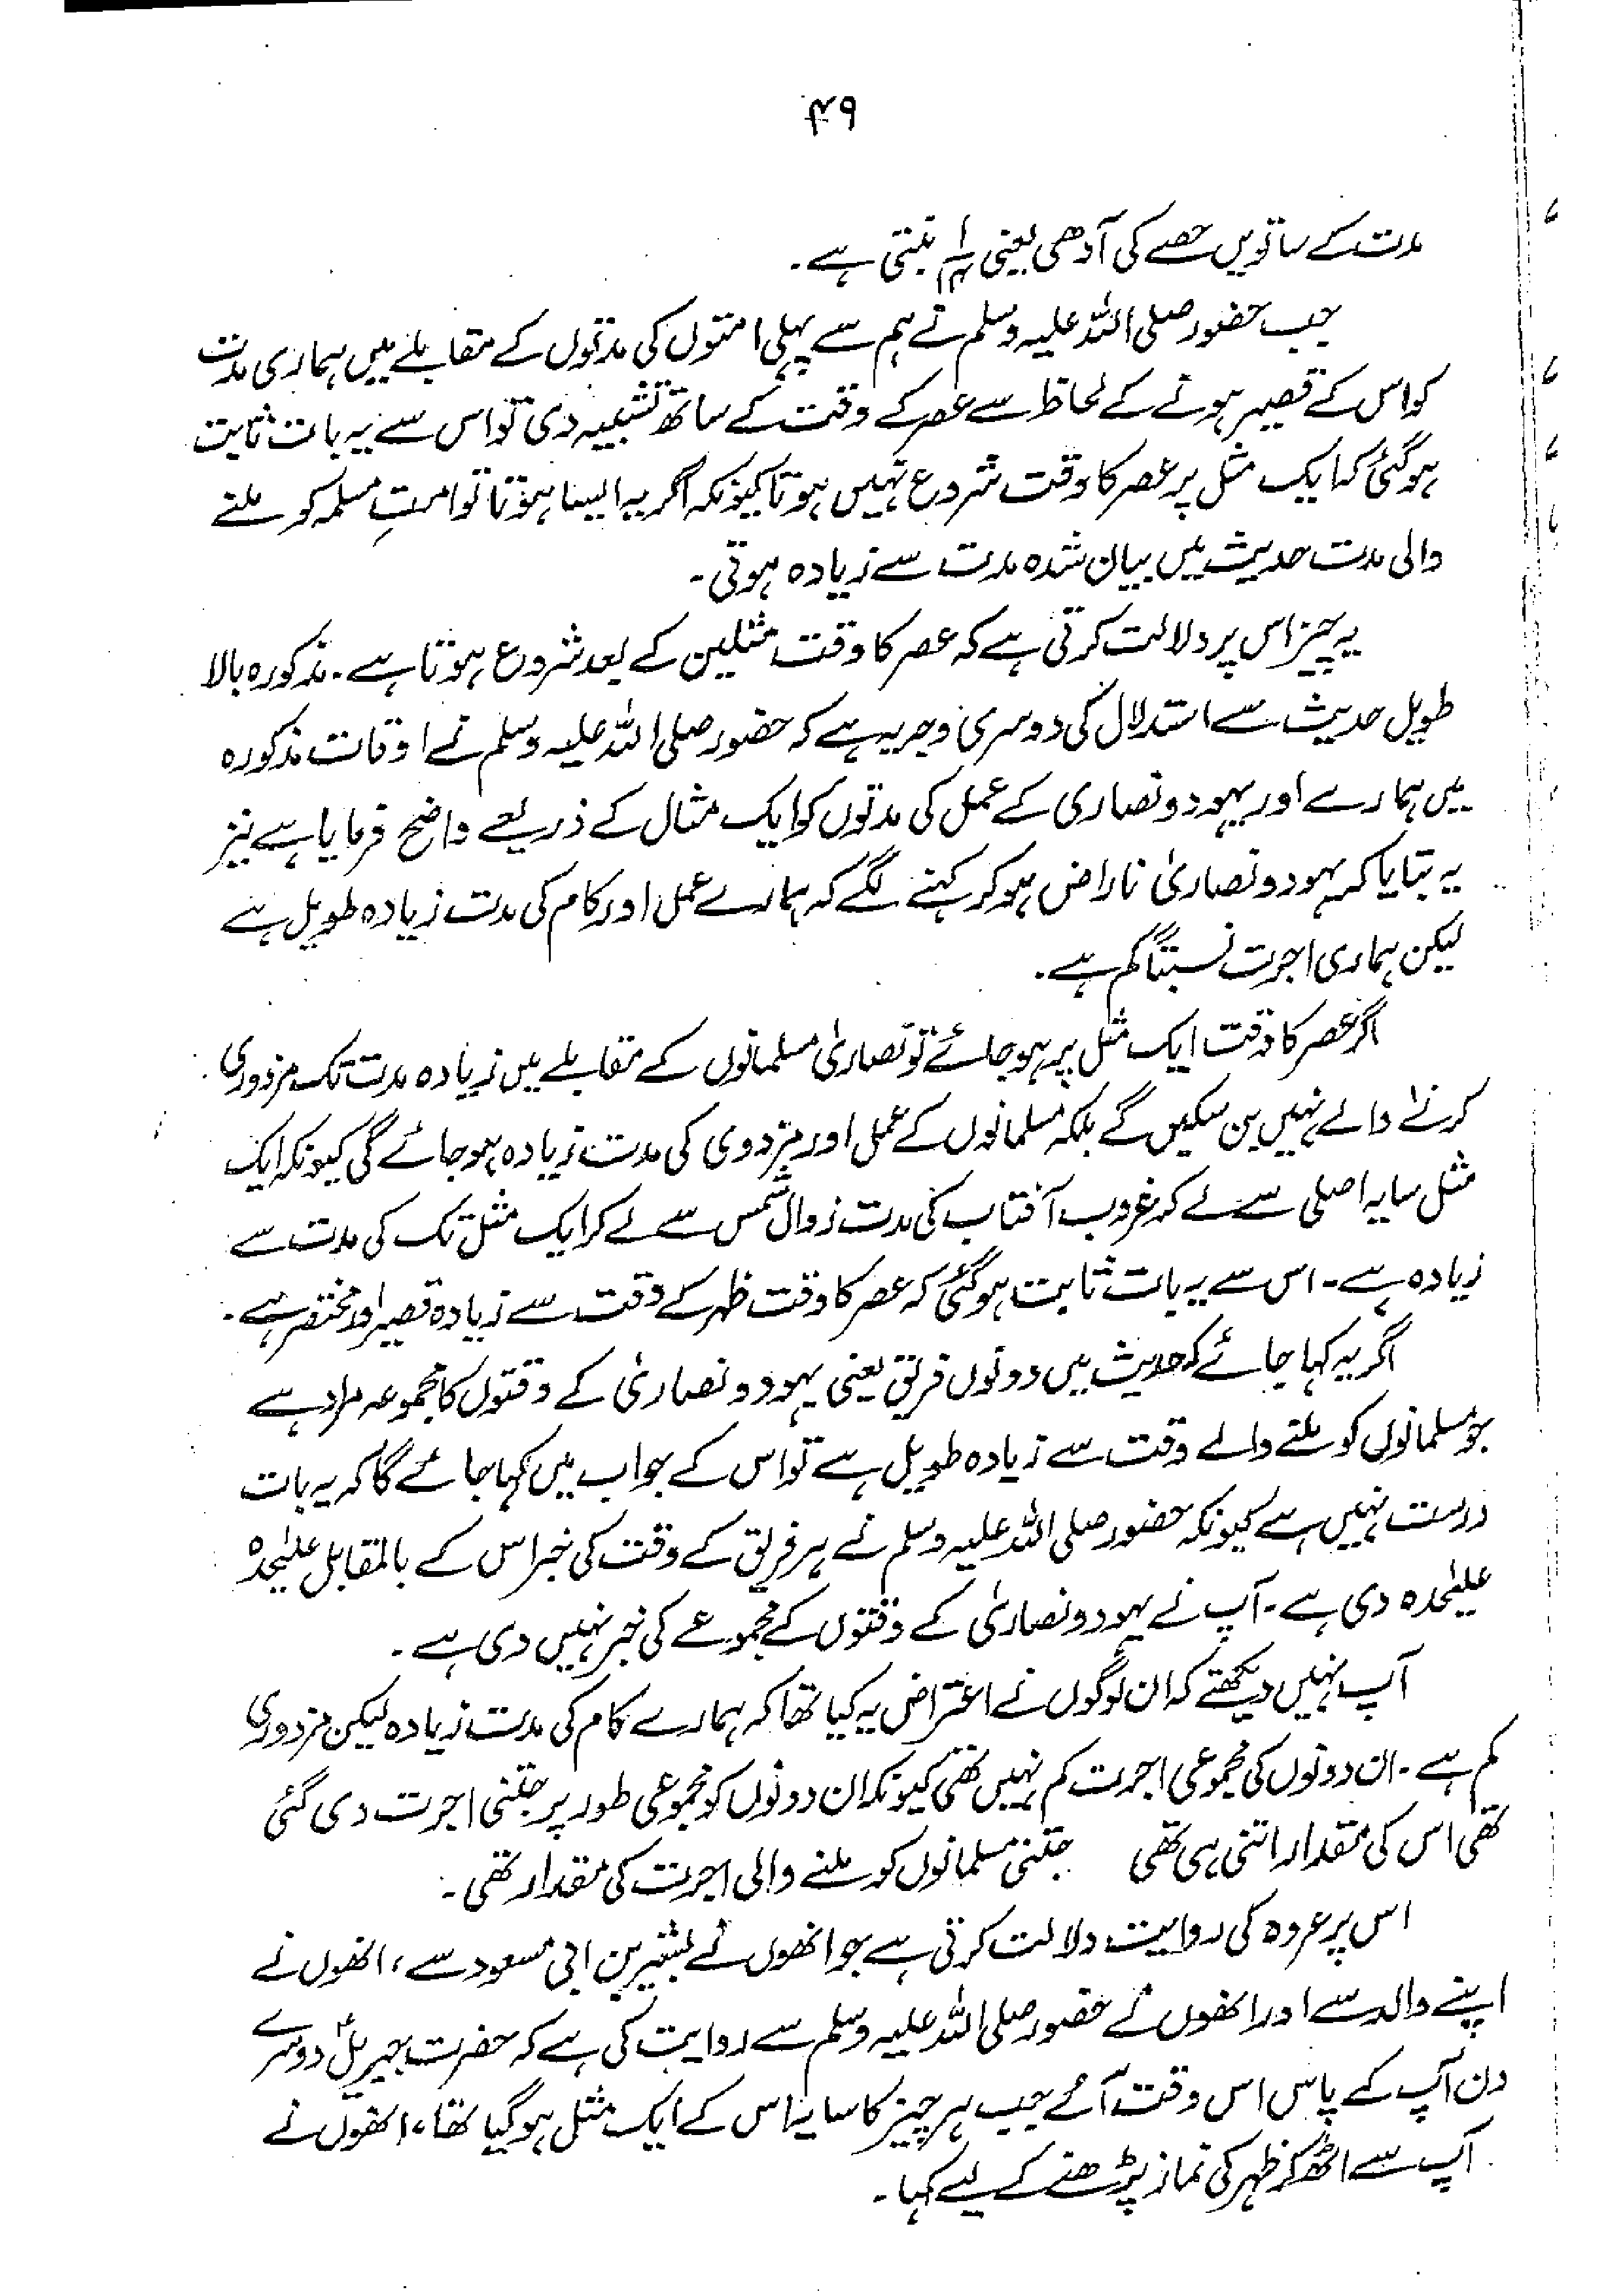 ۴۹
مدت کے ساتویں حصے کی آدھی یعنی ۱/۱۴ بنتی ہے۔
جب حضور صلی اللہ علیہ وسلم نے ہم سے پہلی امتوں کی مدتوں کے مقابلے میں ہماری مدت
کو اس کے قصیر ہونے کے لحاظ سے عصر کے وقت کے ساتھ تشبیہ دی تو اس سے یہ بات ثابت
ہوگئی کہ ایک مثل پر عصر کا وقت شروع نہیں ہوتا کیونکہ اگر یہ ایسا ہوتا تو امتِ مسلمہ کو ملنے
والی مدت حدیث میں بیان شدہ مدت سے زیادہ ہوتی۔
یہ چیز اس پر دلالت کرتی ہے کہ عصر کا وقت مثلین کے بعد شروع ہوتا ہے۔ مذکورہ بالا
طویل حدیث سے استدلال کی دوسری وجہ یہ ہے کہ حضور صلی اللہ علیہ وسلم نے اوقات مذکورہ
میں ہمارے اور یہود و نصاری کے عمل کی مدتوں کو ایک مثال کے ذریعے واضح فرمایا ہے نیز
یہ بتایا کہ یہود و نصاریٰ ناراض ہوکر کہنے لگے کہ ہمارے عمل اور کام کی مدت زیادہ طویل ہے
لیکن ہماری اجرت نسبتاً کم ہے۔
اگر عصر کا وقت ایک مثل پر ہو جائے تو نصاریٰ مسلمانوں کے مقابلے میں زیادہ مدت تک مزدوری
کرنے والے نہیں بن سکیں گے بلکہ مسلمانوں کے عمل اور مزدوری کی مدت زیادہ ہو جائے گی کیونکہ ایک
مثل سایہ اصلی سے لے کر غروب آفتاب کی مدت زوال شمس سے لے کر ایک مثل تک کی مدت سے
زیادہ ہے۔ اس سے یہ بات ثابت ہوگئی کہ عصر کا وقت ظہر کے وقت سے زیادہ قصیر اور مختصر ہے۔
اگر یہ کہا جائے کہ حدیث میں دونوں فریق یعنی یہود و نصاریٰ کے وقتوں کا مجموعہ مراد ہے
جو مسلمانوں کو ملنے والے وقت سے زیادہ طویل ہے تو اس کے جواب میں کہا جائے گا کہ یہ بات
درست نہیں ہے کیونکہ حضور صلی اللہ علیہ وسلم نے ہر فریق کے وقت کی خبر اس کے بالمقابل علیٰحدہ
علیٰحدہ دی ہے۔ آپ نے یہود و نصاریٰ کے وقتوں کے مجموعے کی خبر نہیں دی ہے۔
آپ نہیں دیکھتے کہ ان لوگوں نے اعتراض یہ کیا تھا کہ ہمارے کام کی مدت زیادہ لیکن مزدوری
کم ہے۔ ان دونوں کی مجموعی اجرت کم نہیں تھی کیونکہ ان دونوں کو مجموعی طور پر جتنی اجرت دی گئی
تھی اس کی مقدار اتنی ہی تھی جتنی مسلمانوں کو ملنے والی اجرت کی مقدار تھی۔
اس پر عروہ کی روایت دلالت کرتی ہے جو انھوں نے بشیر بن ابی مسعود سے، انھوں نے
اپنے والد سے اور انھوں نے حضور صلی اللہ علیہ وسلم سے روایت کی ہے کہ حضرت جبریلؑ دوسرے
دن آپ کے پاس اس وقت آئے جب ہر چیز کا سایہ اس کے ایک مثل ہو گیا تھا، انھوں نے
آپ سے اٹھ کر ظہر کی نماز پڑھنے کے لیے کہا۔